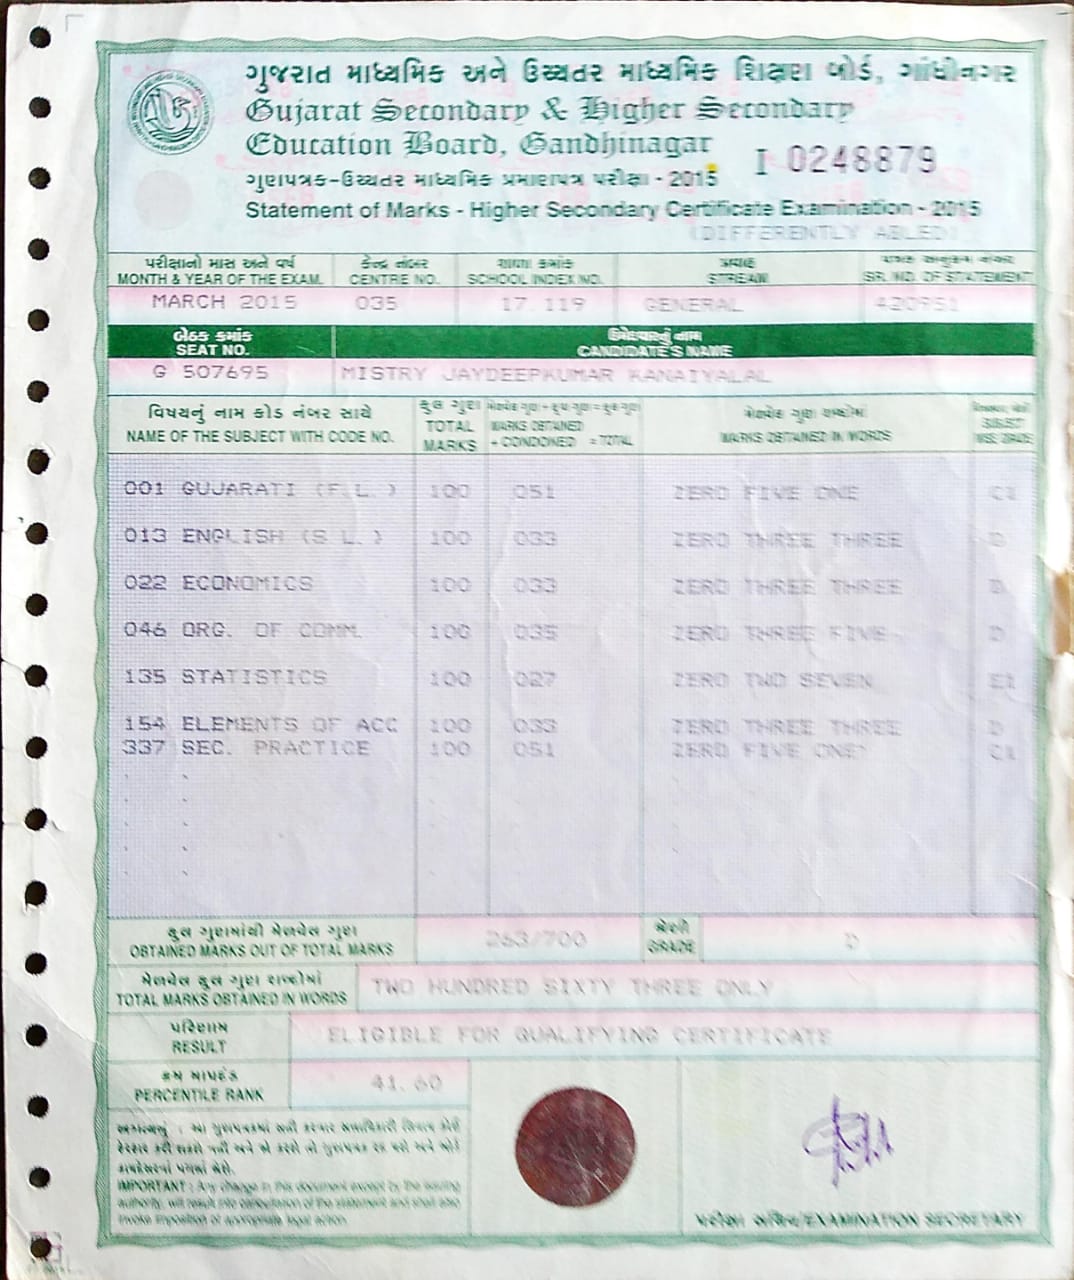 ગુજરાત માધ્યમિક અને ઉચ્ચતર માધ્યમિક શિક્ષણ બોર્ડ, ગાંધીનગર
Gujarat Secondary & Higher Secondary
Education Board, Gandhinagar
I 0248879
ગુણપત્રક-ઉચ્ચતર માધ્યમિક પ્રમાણપત્ર પરીક્ષા - 2015
Statement of Marks - Higher Secondary Certificate Examination - 2015
(DIFFERENTLY ABLED)
પરીક્ષાનો માસ અને વર્ષ કેન્દ્ર નંબર શાળા ક્રમાંક પ્રવાહ
MONTH & YEAR OF THE EXAM. CENTRE NO. SCHOOL INDEX NO. STREAM SR. NO. OF STATEMENT
MARCH 2015 035 17.119 GENERAL 420951
બેઠક ક્રમાંક ઉમેદવારનું નામ
SEAT NO. CANDIDATE'S NAME
G 507695 MISTRY JAYDEEPKUMAR KANAIYALAL
વિષયનું નામ કોડ નંબર સાથે કુલ ગુણ મેળવેલ ગુણ શબ્દોમાં
NAME OF THE SUBJECT WITH CODE NO. TOTAL MARKS MARKS OBTAINED + CONDONED = TOTAL MARKS OBTAINED IN WORDS SUBJECT WISE GRADE
001 GUJARATI (F.L.) 100 051 ZERO FIVE ONE C1
013 ENGLISH (S.L.) 100 033 ZERO THREE THREE D
022 ECONOMICS 100 033 ZERO THREE THREE D
046 ORG. OF COMM. 100 035 ZERO THREE FIVE D
135 STATISTICS 100 027 ZERO TWO SEVEN E1
154 ELEMENTS OF ACC 100 033 ZERO THREE THREE D
337 SEC. PRACTICE 100 051 ZERO FIVE ONE C1
કુલ ગુણમાંથી મેળવેલ ગુણ 263/700 શ્રેણી D
OBTAINED MARKS OUT OF TOTAL MARKS GRADE
મેળવેલ કુલ ગુણ શબ્દોમાં
TOTAL MARKS OBTAINED IN WORDS TWO HUNDRED SIXTY THREE ONLY
પરિણામ
RESULT ELIGIBLE FOR QUALIFYING CERTIFICATE
PERCENTILE RANK 41.60
IMPORTANT : Any change in this document except by the issuing
authority, will result into cancellation of the statement and shall also
invoke imposition of appropriate legal action.
પરીક્ષા સચિવ/EXAMINATION SECRETARY